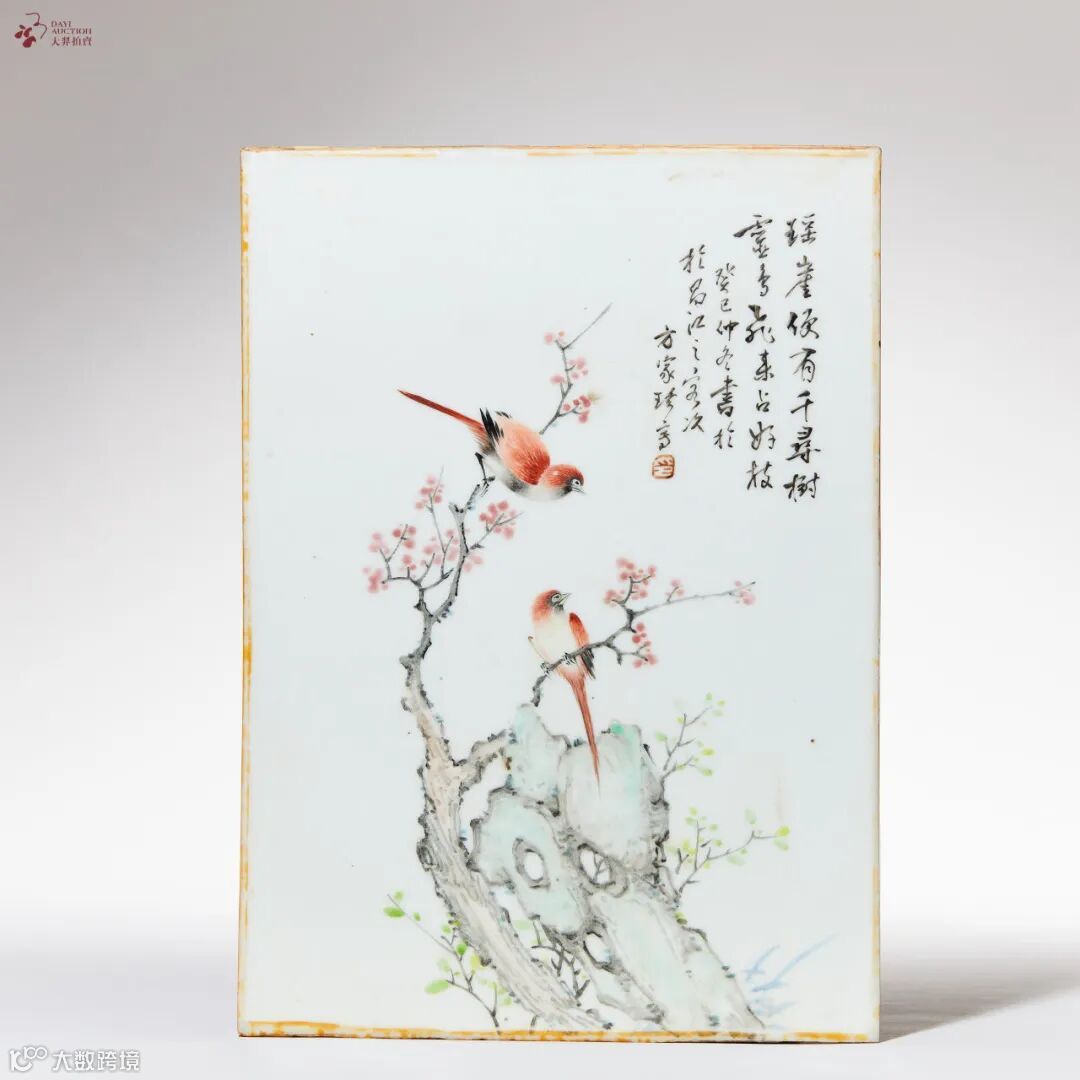 DAYI
AUCTION
大羿拍賣
瑶崖便有千尋樹
靈鳥飛来占好枝
癸巳仲冬書於
於昌江之客次
方家珍寫
大数跨境